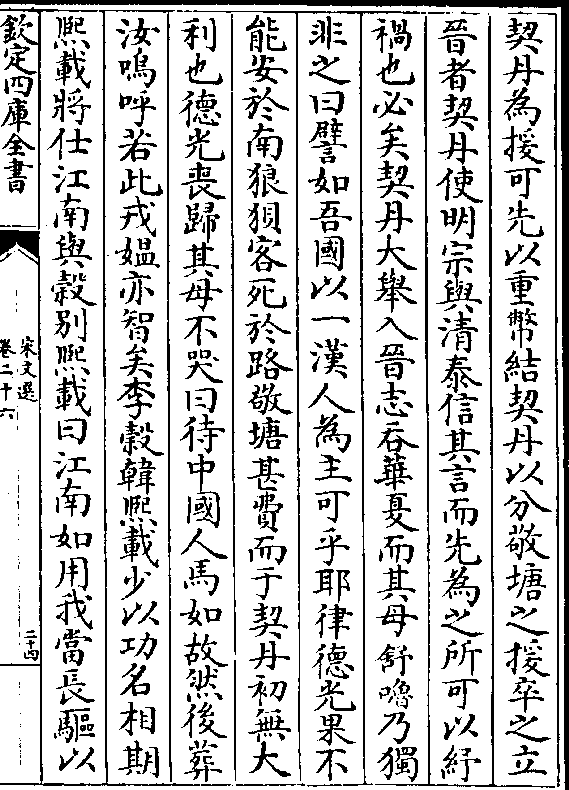 契丹為援可先以重幣結契丹以分敬塘之援卒之立
晉者契丹使明宗與清泰信其言而先為之所可以紓
禍也必矣契丹大舉入晉志吞華夏而其母舒嚕乃獨
非之曰譬如吾國以一漢人為主可乎耶律德光果不
能安於南狼狽客死於路敬塘甚費而于契丹初無大
利也德光喪歸其母不哭曰待中國人馬如故然後葬
汝嗚呼若此戎媼亦智矣李穀韓熙載少以功名相期
熙載將仕江南與穀别熙載曰江南如用我當長驅以
欽定四庫全書
宋文選
卷二十六
二十四